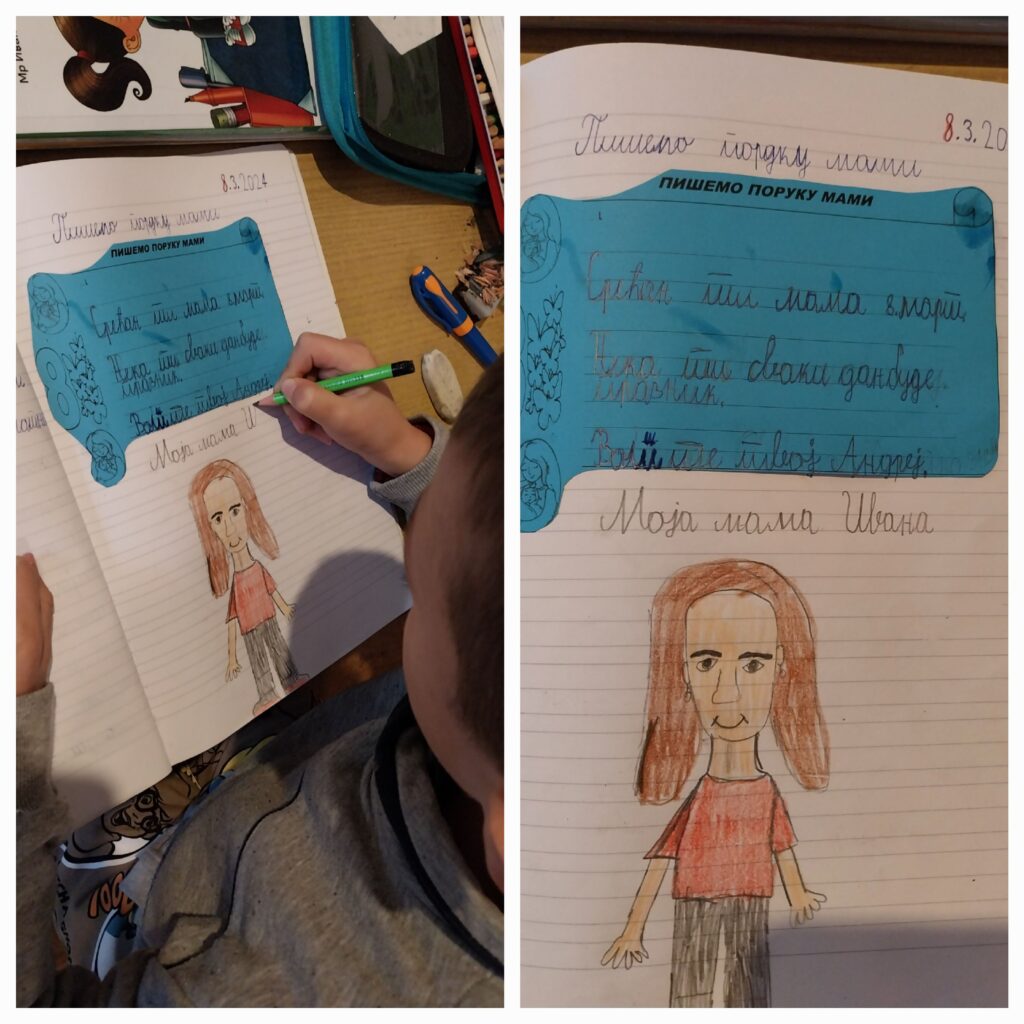 Мр Ива
8.3.2024
Пишемо поруку мами
ПИШЕМО ПОРУКУ МАМИ
Срећан ти мама 8.март.
Нека ти сваки дан буде
празник.
Волим те твој Андреј.
Моја мама И
8.3.20
Пишемо поруку мами
ПИШЕМО ПОРУКУ МАМИ
Срећан ти мама 8.март.
Нека ти сваки дан буде
празник.
Волим те твој Андреј.
Моја мама Ивана